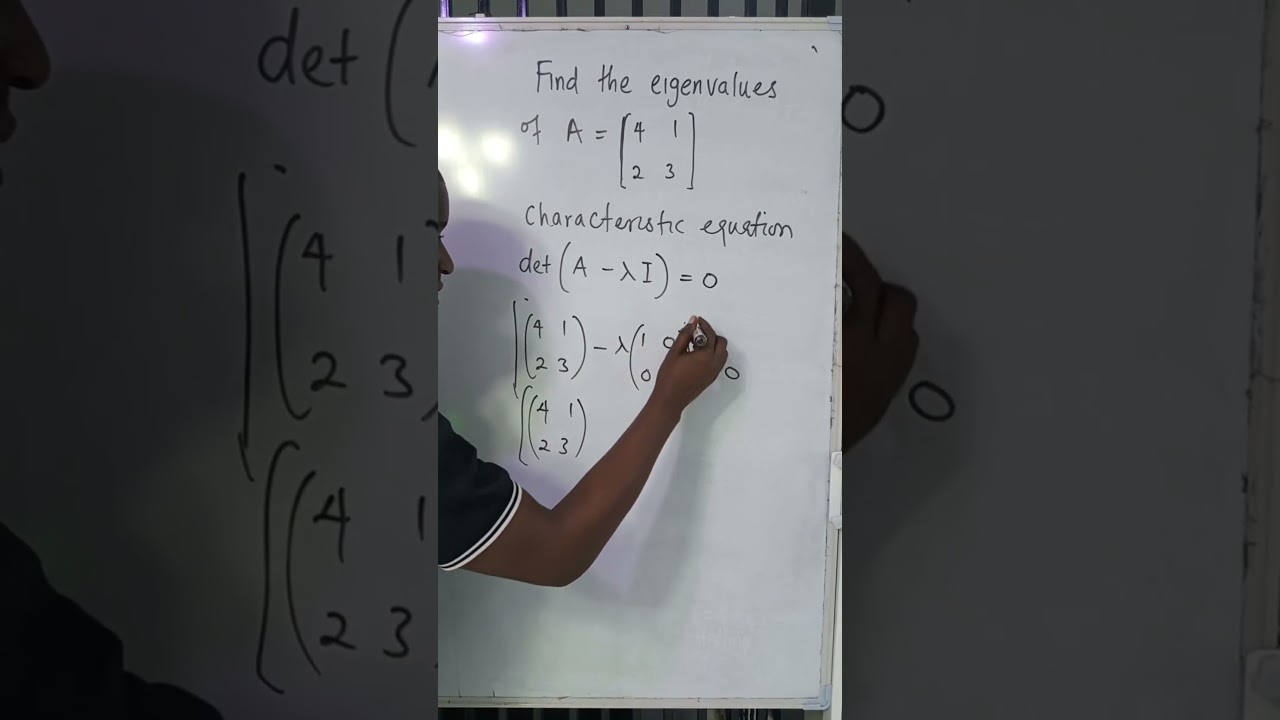 Find the eigenvalues
of A = [4 1
2 3]
Characteristic equation
det (A - λI) = 0
|(4 1
2 3) - λ(1 0
0 0
[(4 1
2 3)